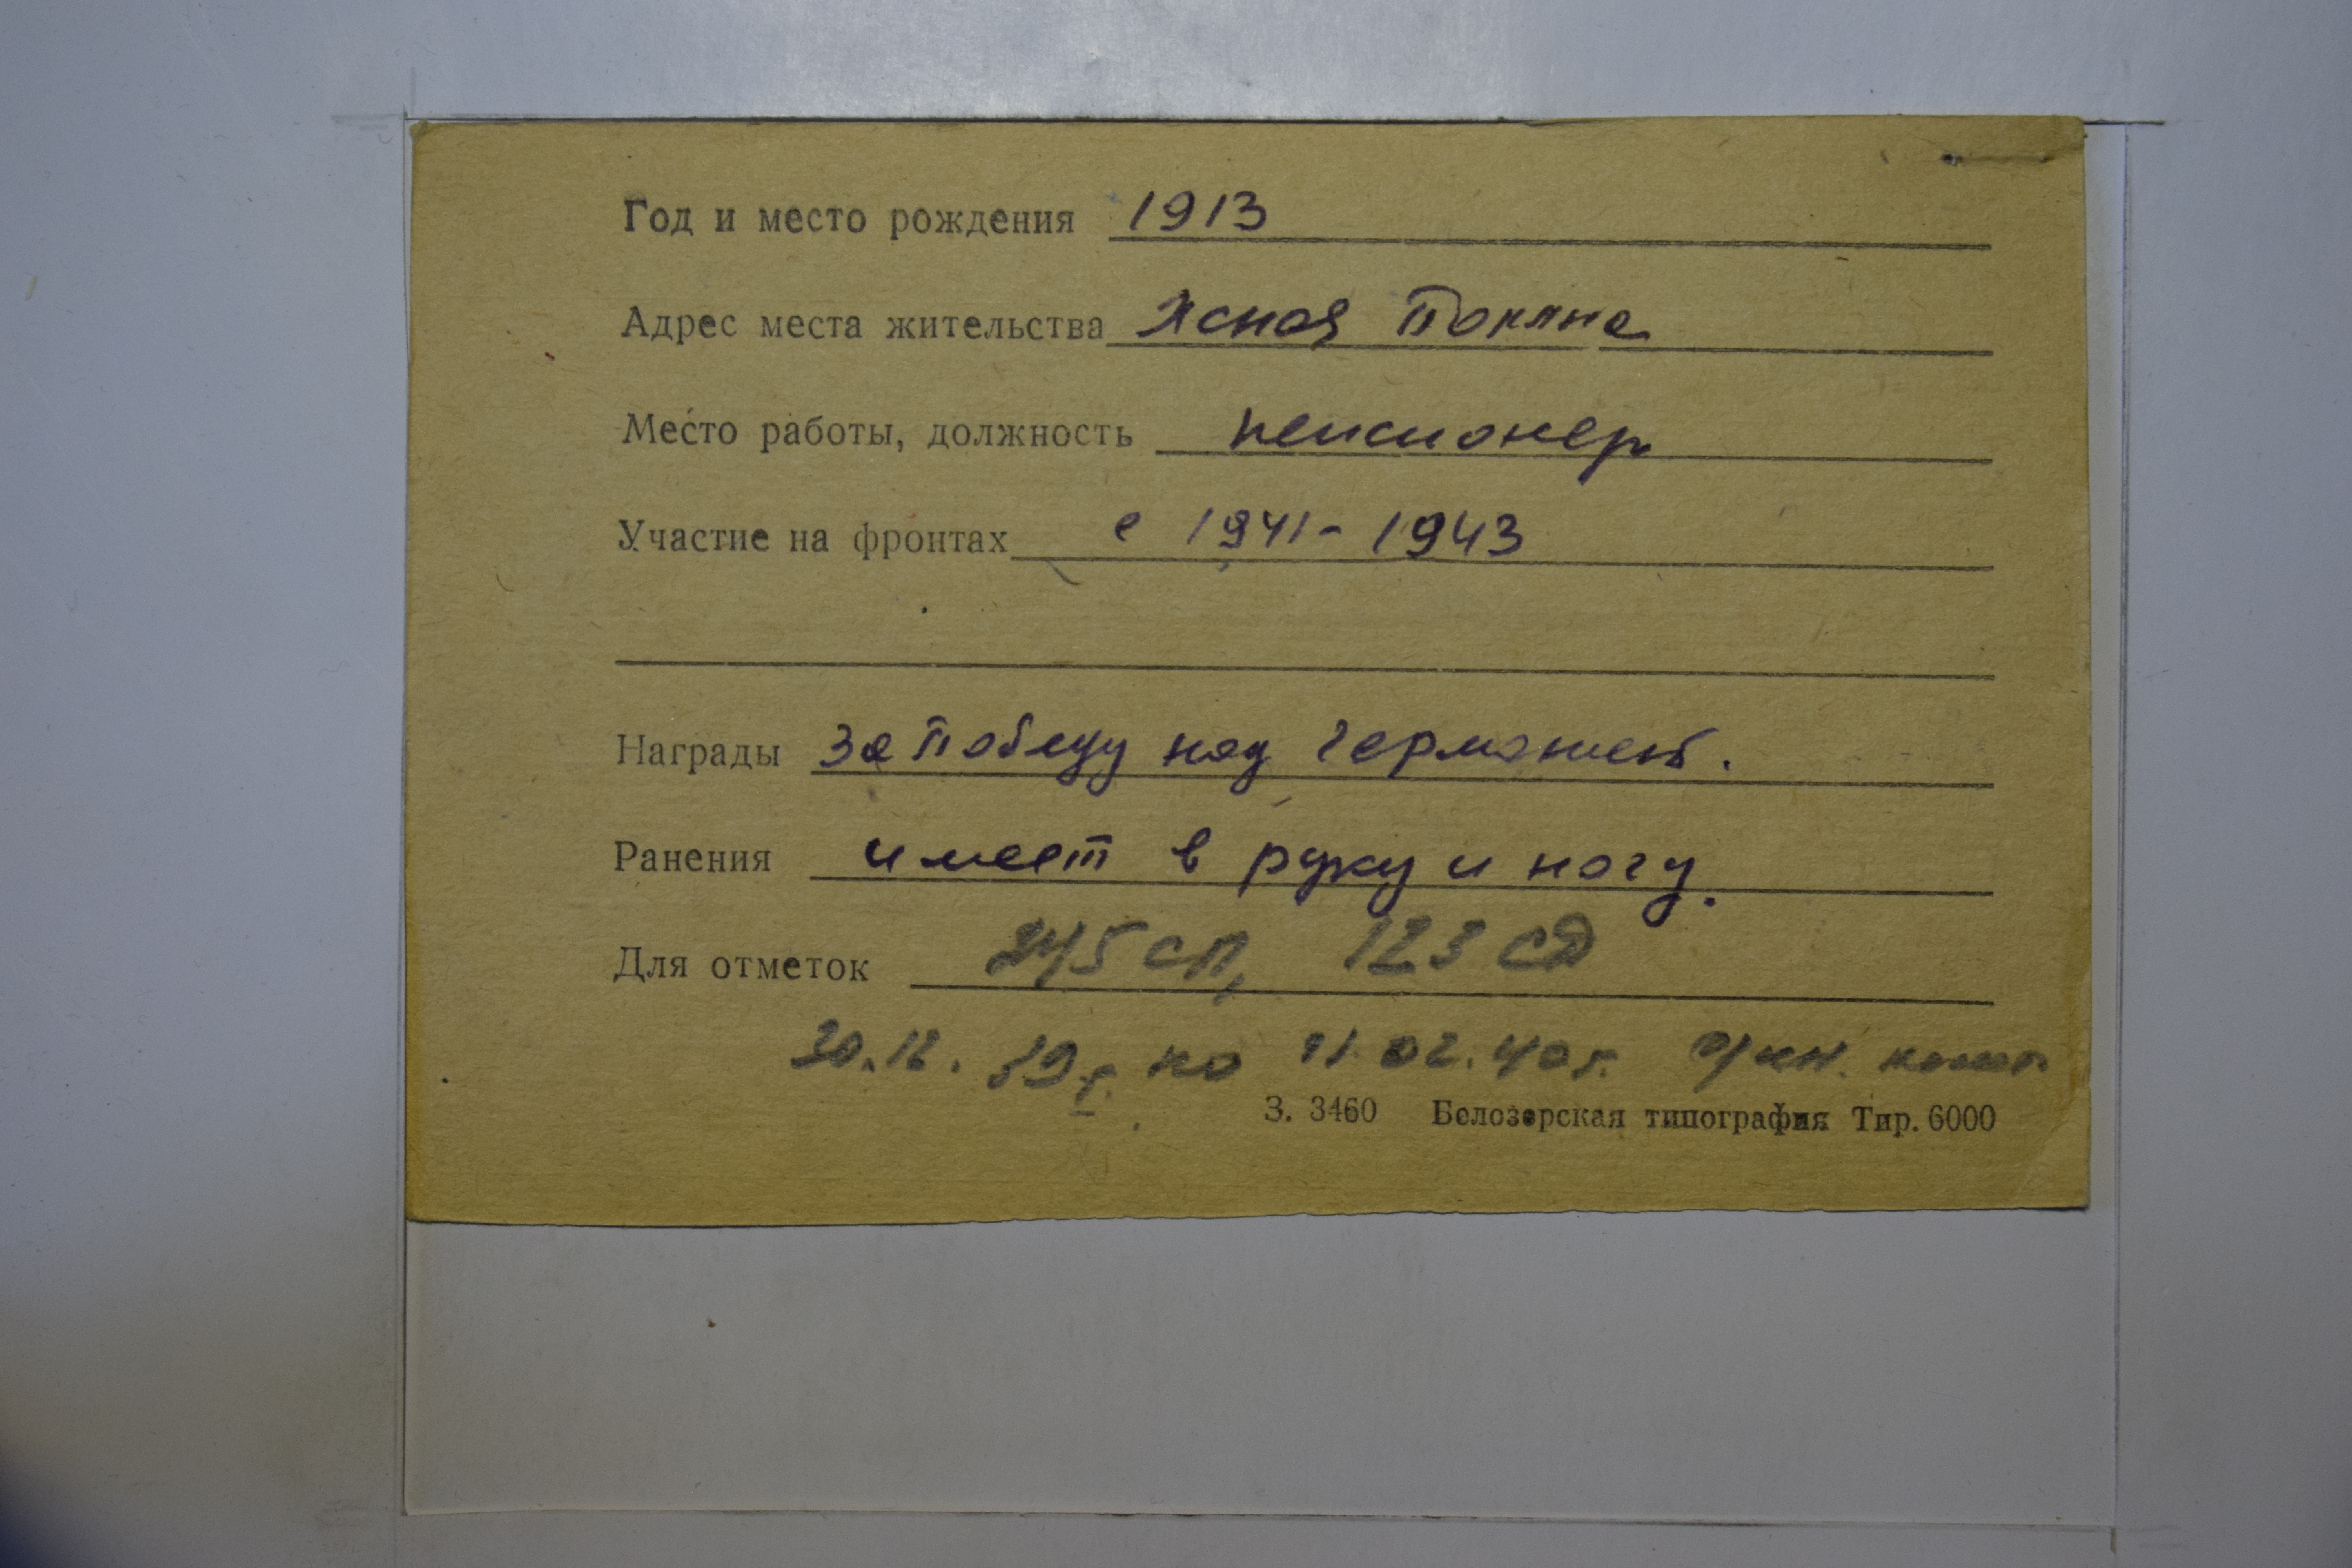 Год и место рождения 1913
Адрес места жительства Ясная Поляна
Место работы, должность пенсионер
Участие на фронтах с 1941-1943
Награды За победу над Германией.
Ранения имеет в руку и ногу.
Для отметок 245 СП, 123 СД
30.12.39 г. по 11.02.40 г. фин. комп.
З. 3460 Белозерская типография Тир. 6000